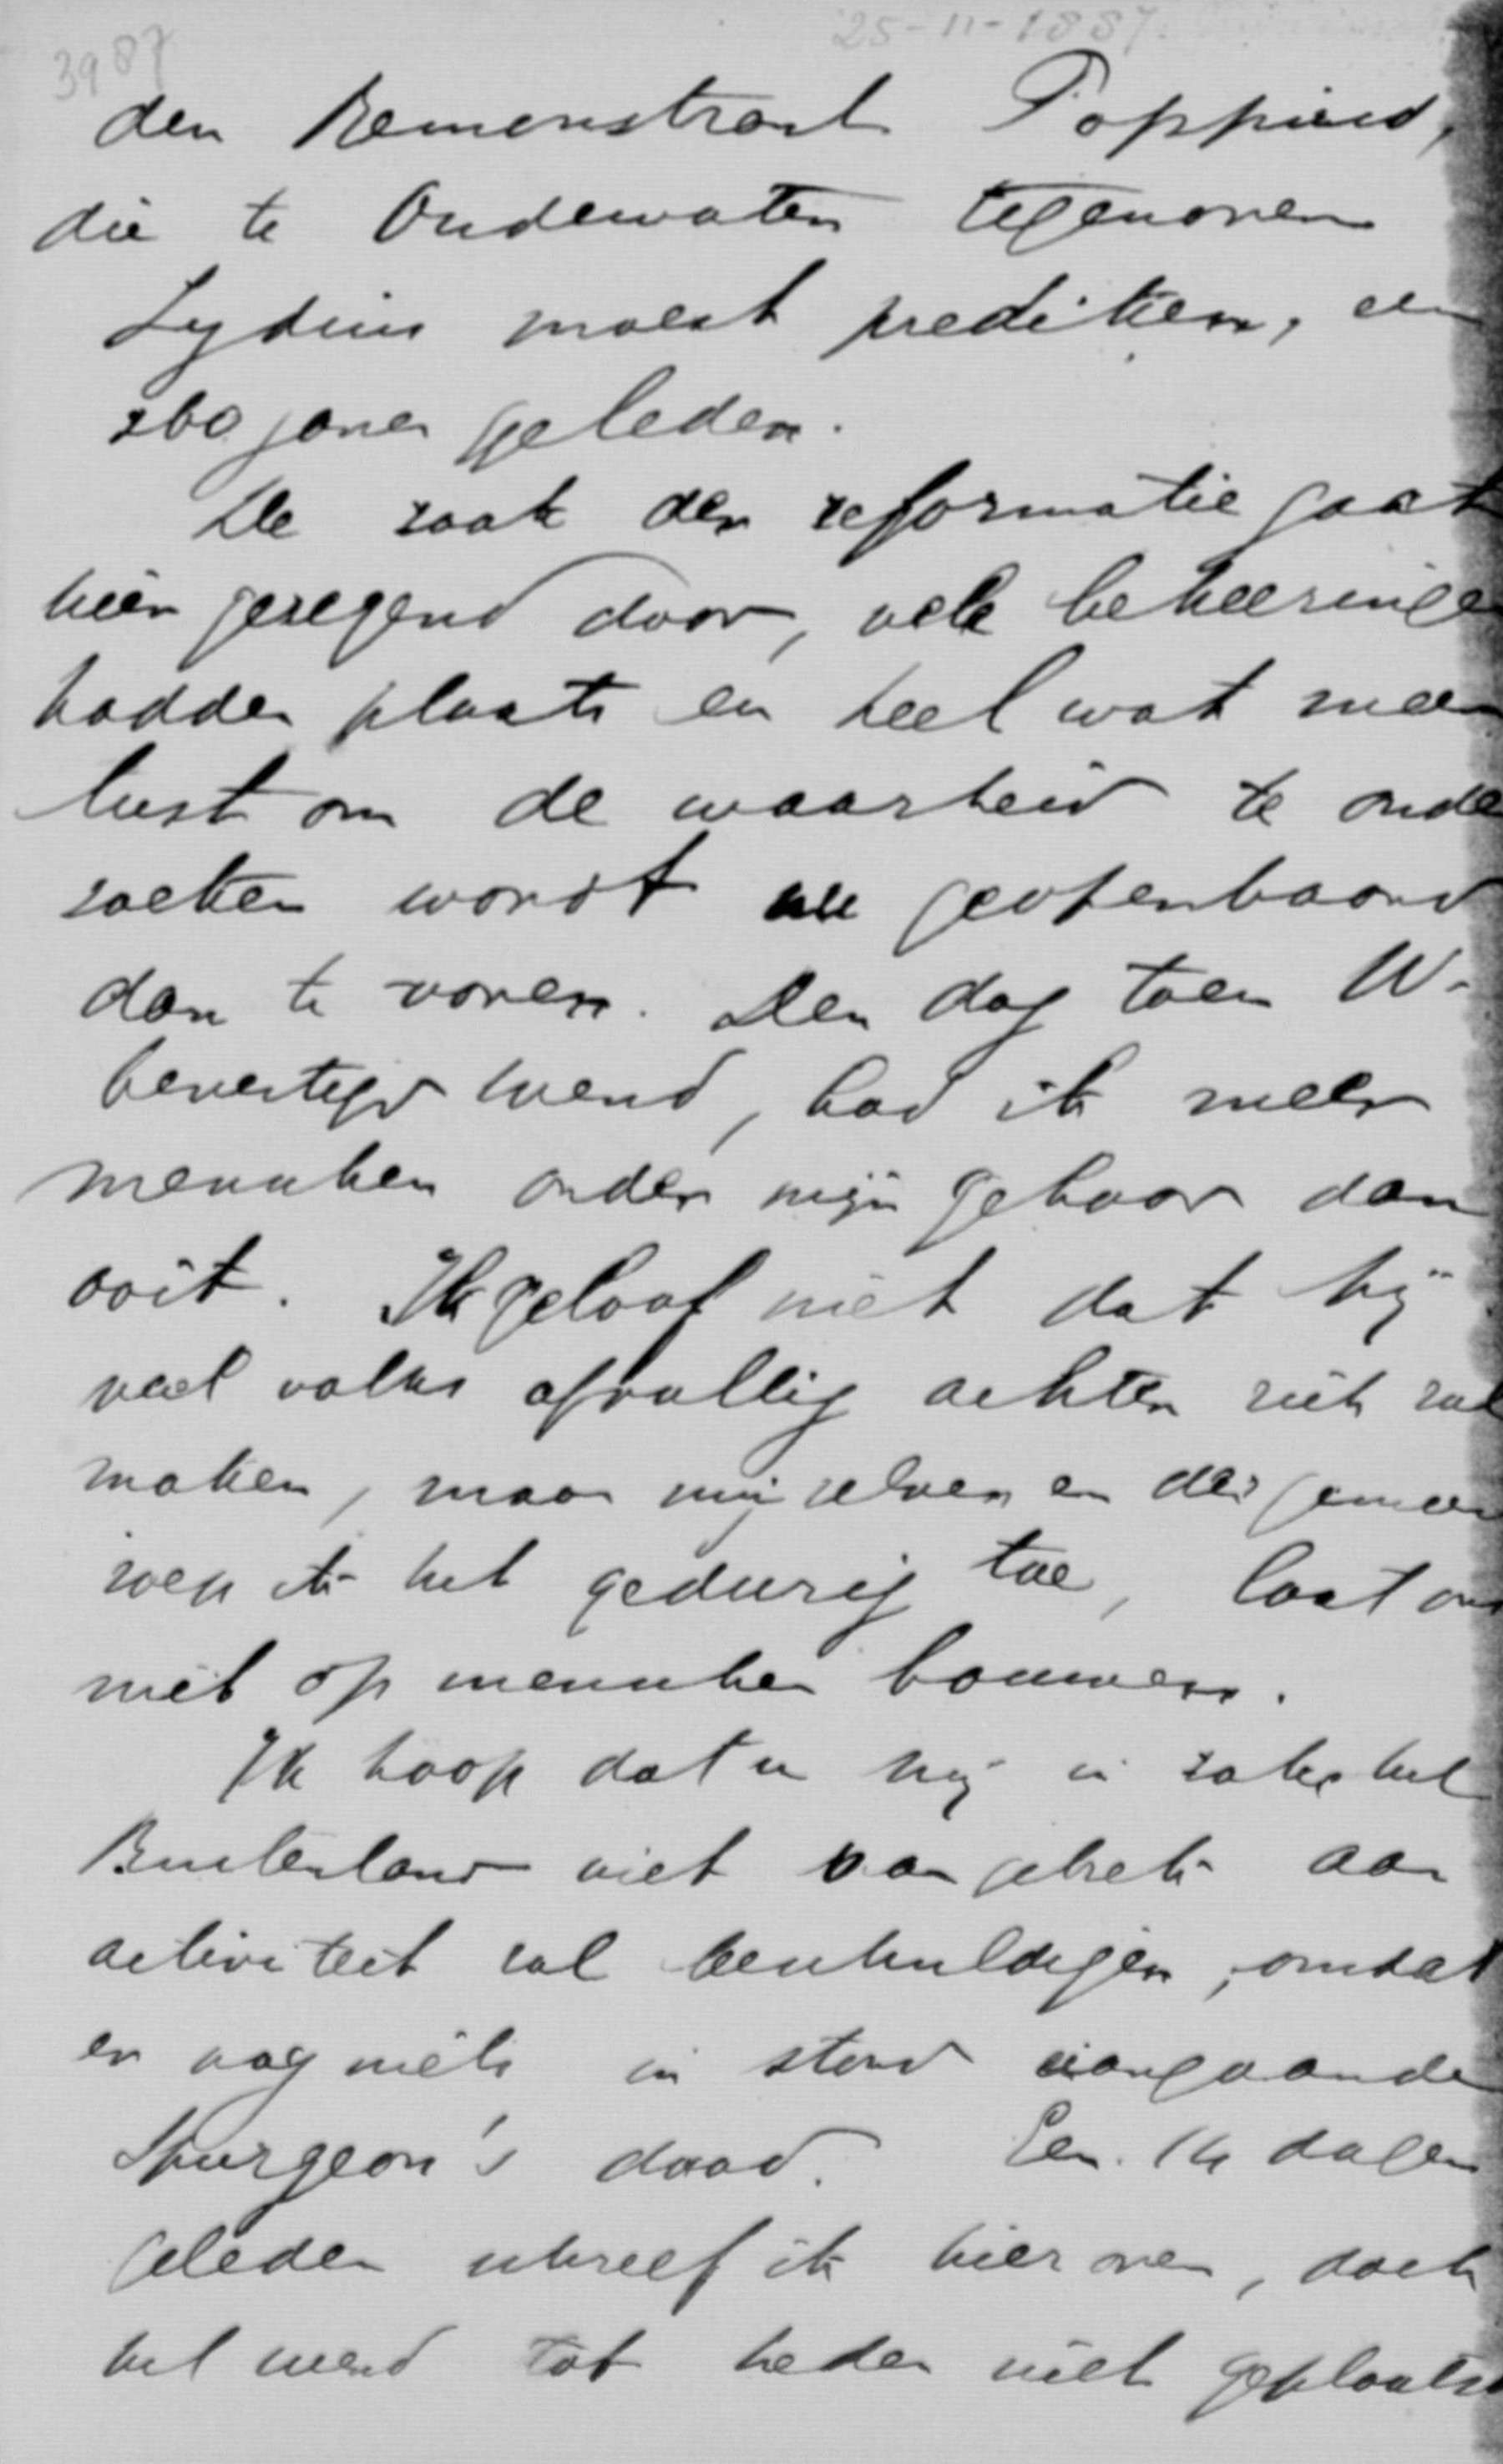 25-11-1887.
3987
den Remonstrant Poppius,
die te Oudewater tegenover
Lydius moest prediken, een
260 jaren geleden.
De zaak der reformatie gaat
hier gezegend door, vele bekeeringen
hadden plaats en heel wat meer
lust om de waarheid te onder
zoeken wordt nu geopenbaard
dan te voren. Den dag toen W.
bevestigd werd, had ik meer
menschen onder mijn gehoor dan
ooit. Ik geloof niet dat hij
veel volks afvallig achter zich zal
maken, maar mij zelven en der gemeen
roep ik het gedurig toe, laat ons
niet op menschen bouwen.
Ik hoop dat u mij in zake het
Buitenland niet van gebrek aan
activiteit zal beschuldigen, omdat
er nog niets in stond aangaande
Spurgeon's daad. Een 14 dagen
geleden schreef ik hierover, doch
het werd tot heden niet geplaatst